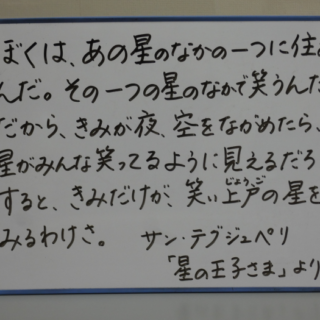 ぼくは、あの星のなかの一つに住
んだ。その一つの星のなかで笑うんだ
だから、きみが夜、空をながめたら、
星がみんな笑ってるように見えるだろ
すると、きみだけが、笑い上戸の星を
じょうご
みるわけさ。 サン・テグジュペリ
「星の王子さま」より